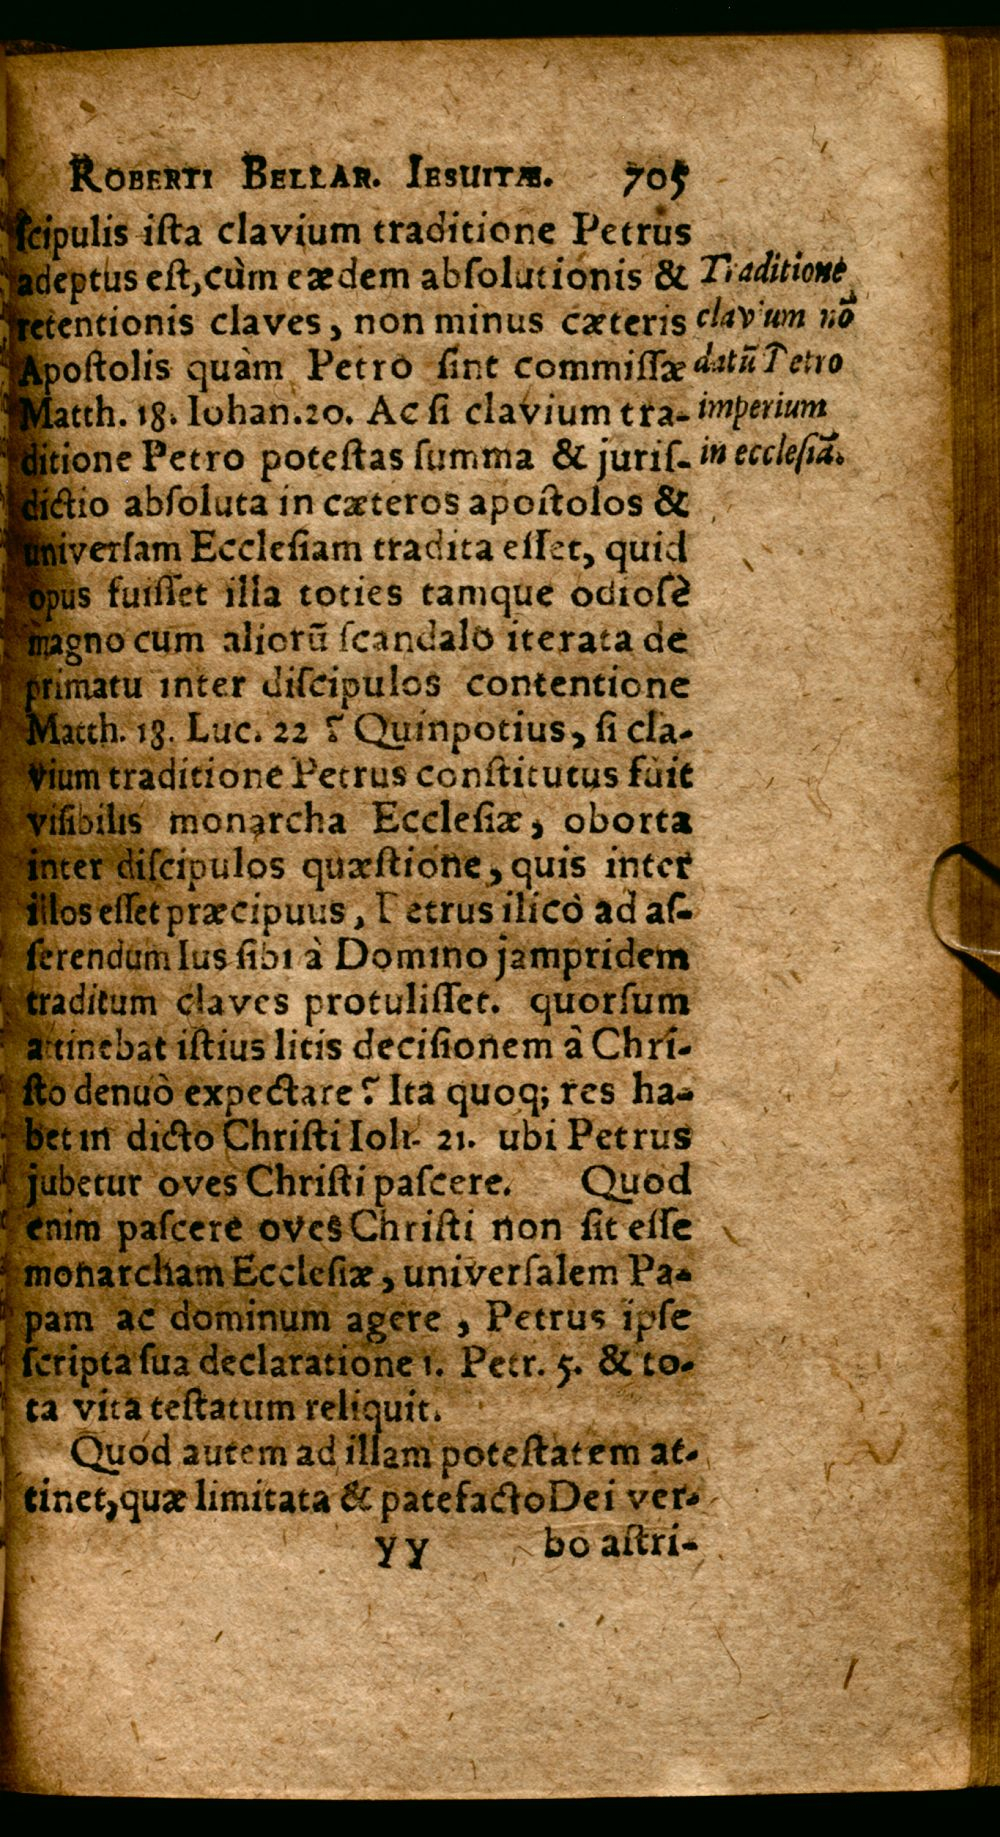 ROBERTI BELLAR. IESUITÆ. 705
ſcipulis iſta clavium traditione Petrus
adeptus eſt, cùm eædem abſolutionis &
retentionis claves, non minus cæteris
Apoſtolis quàm Petro ſint commiſſæ
Matth. 18. Iohan. 20. Ac ſi clavium tra-
ditione Petro poteſtas ſumma & juriſ-
dictio abſoluta in cæteros apoſtolos &
univerſam Eccleſiam tradita eſſet, quid
opus fuiſſet illa toties tamque odioſè
magno cum aliorū ſcandalo iterata de
primatu inter diſcipulos contentione
Matth. 18. Luc. 22 ? Quinpotius, ſi cla-
vium traditione Petrus conſtitutus fuit
viſibilis monarcha Eccleſiæ, oborta
inter diſcipulos quæſtione, quis inter
illos eſſet præcipuus, Petrus ilicò ad aſ-
ſerendum Ius ſibi à Domino jampridem
traditum claves protuliſſet. quorſum
attinebat iſtius litis deciſionem â Chri-
ſto denuò expectare ? Ita quoq; res ha-
bet in dicto Chriſti Ioh. 21. ubi Petrus
jubetur oves Chriſti paſcere. Quod
enim paſcere oves Chriſti non ſit eſſe
monarcham Eccleſiæ, univerſalem Pa-
pam ac dominum agere, Petrus ipſe
ſcripta ſua declaratione 1. Petr. 5. & to-
ta vita teſtatum reliquit.
Quod autem ad illam poteſtatem at-
tinet, quæ limitata & patefacto Dei ver-
YY bo aſtri-
Traditione
clavium nō
datū Petro
imperium
in eccleſiā.